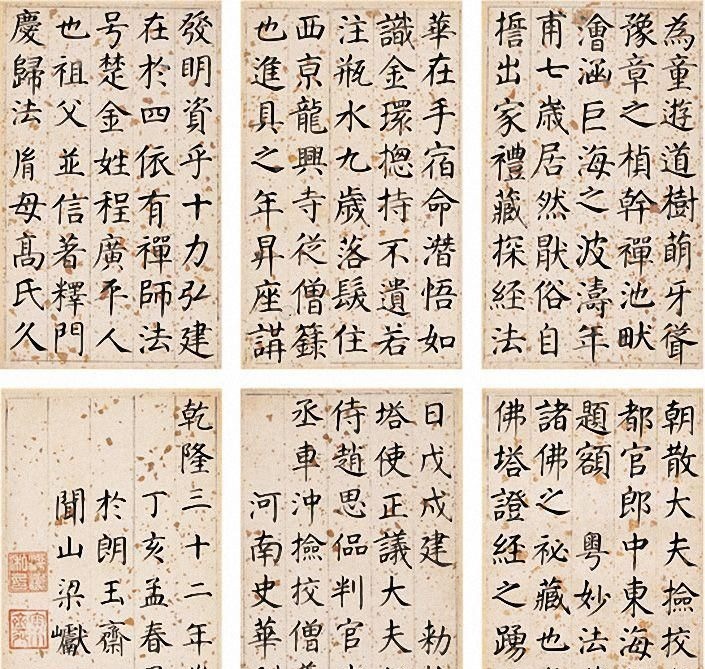 為童遊道樹萌牙聳
豫章之楨幹禪池畎
澮涵巨海之波濤年
甫七歲居然猒俗自
誓出家禮藏探經法
華在手宿命潛悟如
識金環揔持不遺若
注瓶水九歲落髮住
西京龍興寺從僧籙
也進具之年昇座講
發明資乎十力弘建
在於四依有禪師法
号楚金姓程廣平人
也祖父並信著釋門
慶歸法胤母高氏久
朝散大夫撿挍
都官郎中東海
題額 粵妙法
諸佛之祕藏也
佛塔證經之踴
日戊戌建 勑
塔使正議大夫
侍趙思偘判官
丞車沖撿挍僧
河南史華
乾隆三十二年
丁亥孟春
於朗玉齋
聞山梁巘